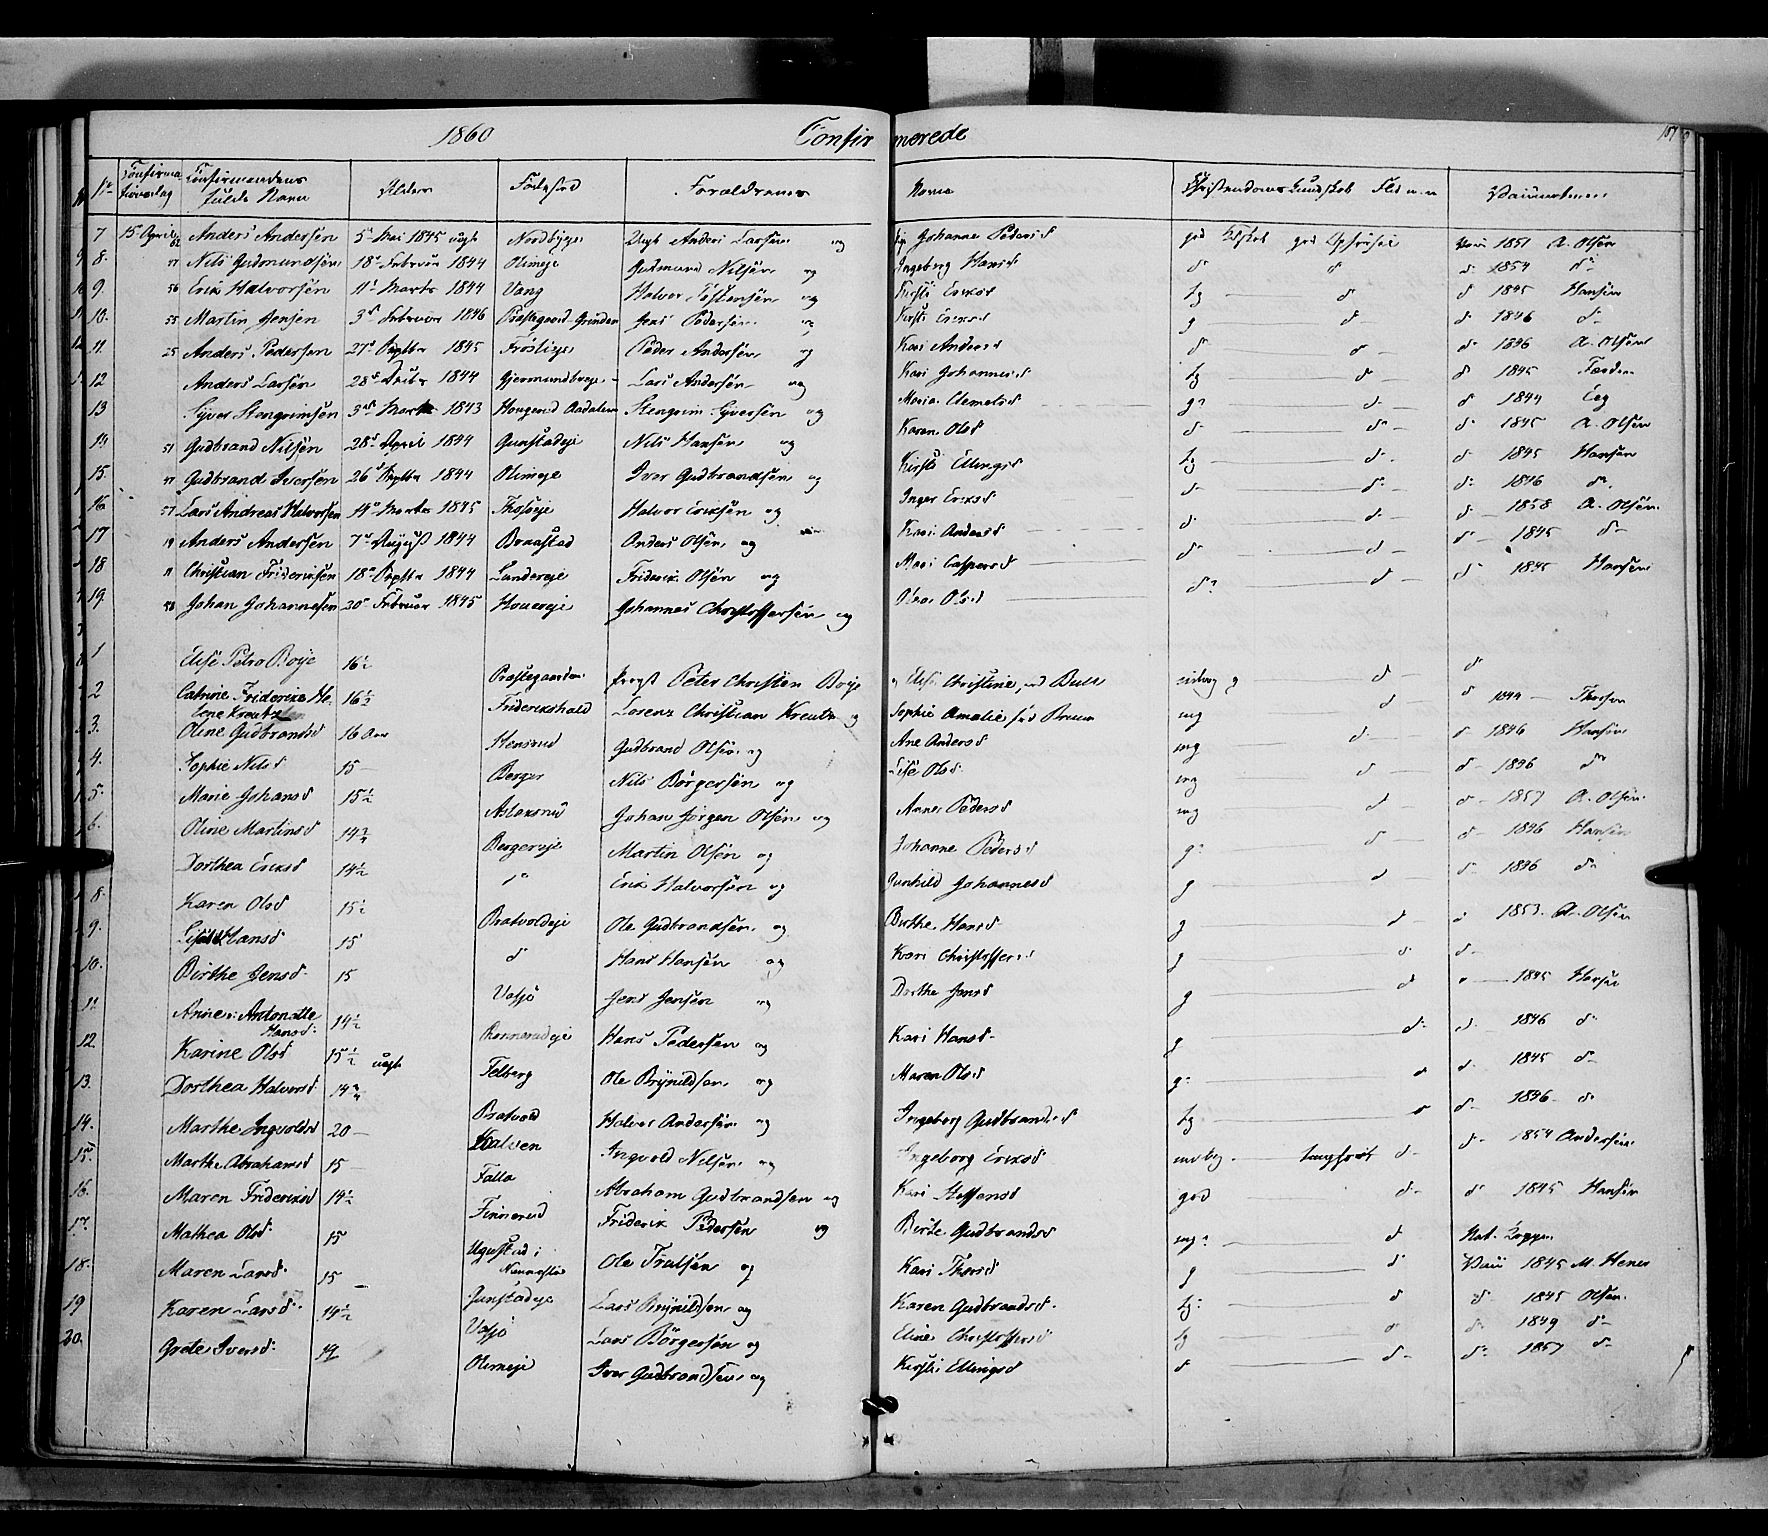 1860 Confirmerede 187
No Confirmationsdag Confirmandens fulde Navn Alder Fødested Forældrenes Navne Christendoms Kundskab Flid Vaccinationen
7 15 April Anders Andersen 5 Mai 1845 uægte Nordbyeje Anders Larsen og Johanne Pedersd god 1851 A. Olsen
8 Nils Gudmundsen 18 Februar 1844 Olimeje Gudmund Nilsen og Ingeborg Hansd d d d 1854 d
9 56 Erik Halvorsen 11 Marts 1844 Vang Halvor og Kirsti Eriksd tg d d 1845 Hansen
10. 55 Martin Jensen 3 Februar 1846 Præstegaard-Grinden Jens Pedersen og Kirsti Eriksd g d d 1846 d
11. 25 Anders Pedersen 27 Septbr 1845 Frøslieje Peder Andersen og Kari Andersd d d d 1846 A. Olsen
12 Anders Larsen 28 1844 Gjermundboeje Lars Andersen og Kari Johannesd tg d d 1845
13 Syver Stengrimsen 3 Marts 1843 Hougerud Aadalen Stengrim Syversen og Maria Clemetsd g d d 1844
14 51 Gudbrand Nilsen 28 April 1844 Gunstadeje Nils Hansen og Karen Olsd d d d 1845 A. Olsen
15. Gudbrand Iversen 26 Septbr 1844 Olimeje Iver Gudbrandsen og Kirsti Ellingsd tg d d 1845 Hansen
16. 57 Lars Andreas Halvorsen 14 Marts 1845 Halvor Eriksen og Inger Eriksd d d d 1846 d
17 19 Anders Andersen 7 August 1844 Braastad Anders Olsen og Kari Andersd d d d 1858 A. Olsen
18 11 Christian Frideriksen 18 Septbr 1844 Landereje Friderik Olsen og Mari Caspersd d d d 1845 d
19. Johan Johannesen 20 Februar 1845 Houereje Johannes Christoffersen og Olsd d d d 1845 Hansen
1 Elise Petra Boije 16½ Præstegaarden Provst Peter Christian Boije og Elise Christine, født Bull d d
2 Catrine Friderike Helene Kreutz 16½ Friderikshald Lorenz Christian Kreutz og Sophie Amalie, fød Bruun mg d d 1844
3. Oline Gudbrandsd 16 Aar Stensrud Gudbrand Olsen og Ane Andersd mg d d 1846 Hansen
4. Sophie Nilsd 15 Berger Nils Børgersen og Lise Olsd mg d d 1846 d
5. Marie Johansd 15½ Aslaksrud Johan Jørgen Olsen og Anne Pedersd mg d d 1857 A. Olsen
6. Oline Martinsd 14¾ Bergereje Martin Olsen og Johanne Pedersd g d d 1846 Hansen
Dorthea Eriksd 14½ d Erik Halvorsen og Gunhild Johannesd g d d 1846 d
8. Karen Olsd 15½ Bratvoldeje Ole Gudbrandsen og Birthe Hansd g d d 1853. A. Olsen
9. Lise Hansd 15 d Hans Hansen og Kari Christoffersd g d d
10. Birthe Jensd. 15 Vassjø Jens Jensen og Dorthe Jensd g d d 1845 Hansen
11. Anne Antonette Hansd: 14½ Hans Pedersen og Kari Hansd g d d 1846 d
12. Karine Olsd 15½ uægte Felberg Ole Brynildsen og Maren Olsd g d d 1845 d
13. Dorthea Halvorsd 14¾ Bratvold Halvor Andersen og Ingeborg Gudbrandsd tg d d 1846 d
14. Marthe Ingvoldsd 20 Halsen Ingvold Nilsen og Ingeborg Eriksd d d 1854 Andersen
15. Marthe Abrahamsd 15 Falla Abraham Gudbrandsen og Kari Steffensd god d d 1845 Hansen
16. Maren Frideriksd 14½ Finnerud Friderik Pedersen og Birte Gudbrandsd mg d Nat. Kopper
17. Mathea Olsd. 15 Ole Trulsen og Kari Thorsd g d Vacc 1845 M. Henes
18. Maren Larsd. 15 Gunstadeje Lars Brynildsen og Karen Gudbrandsd. tg d d 1845 Olsen
19 Karen Larsd. 14½ Vassjø Lars Børgersen og Eline Christoffersd tg d d 1849 d
20. Grete Iversd. 19 Olimeje Iver Gudbrandsen og Kirsti Ellingsd d d d 1857 d